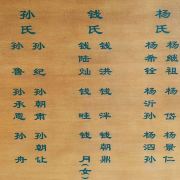 杨氏
杨继祖 杨岱 杨景仁
杨希铨 杨沂孙 杨泗孙
钱氏
钱洪 钱 钱朝鼎
钱陆灿 钱 钱 月(女)
孙氏
孙纪 孙朝肃 孙朝让
孙鲁 孙承恩 孙舟